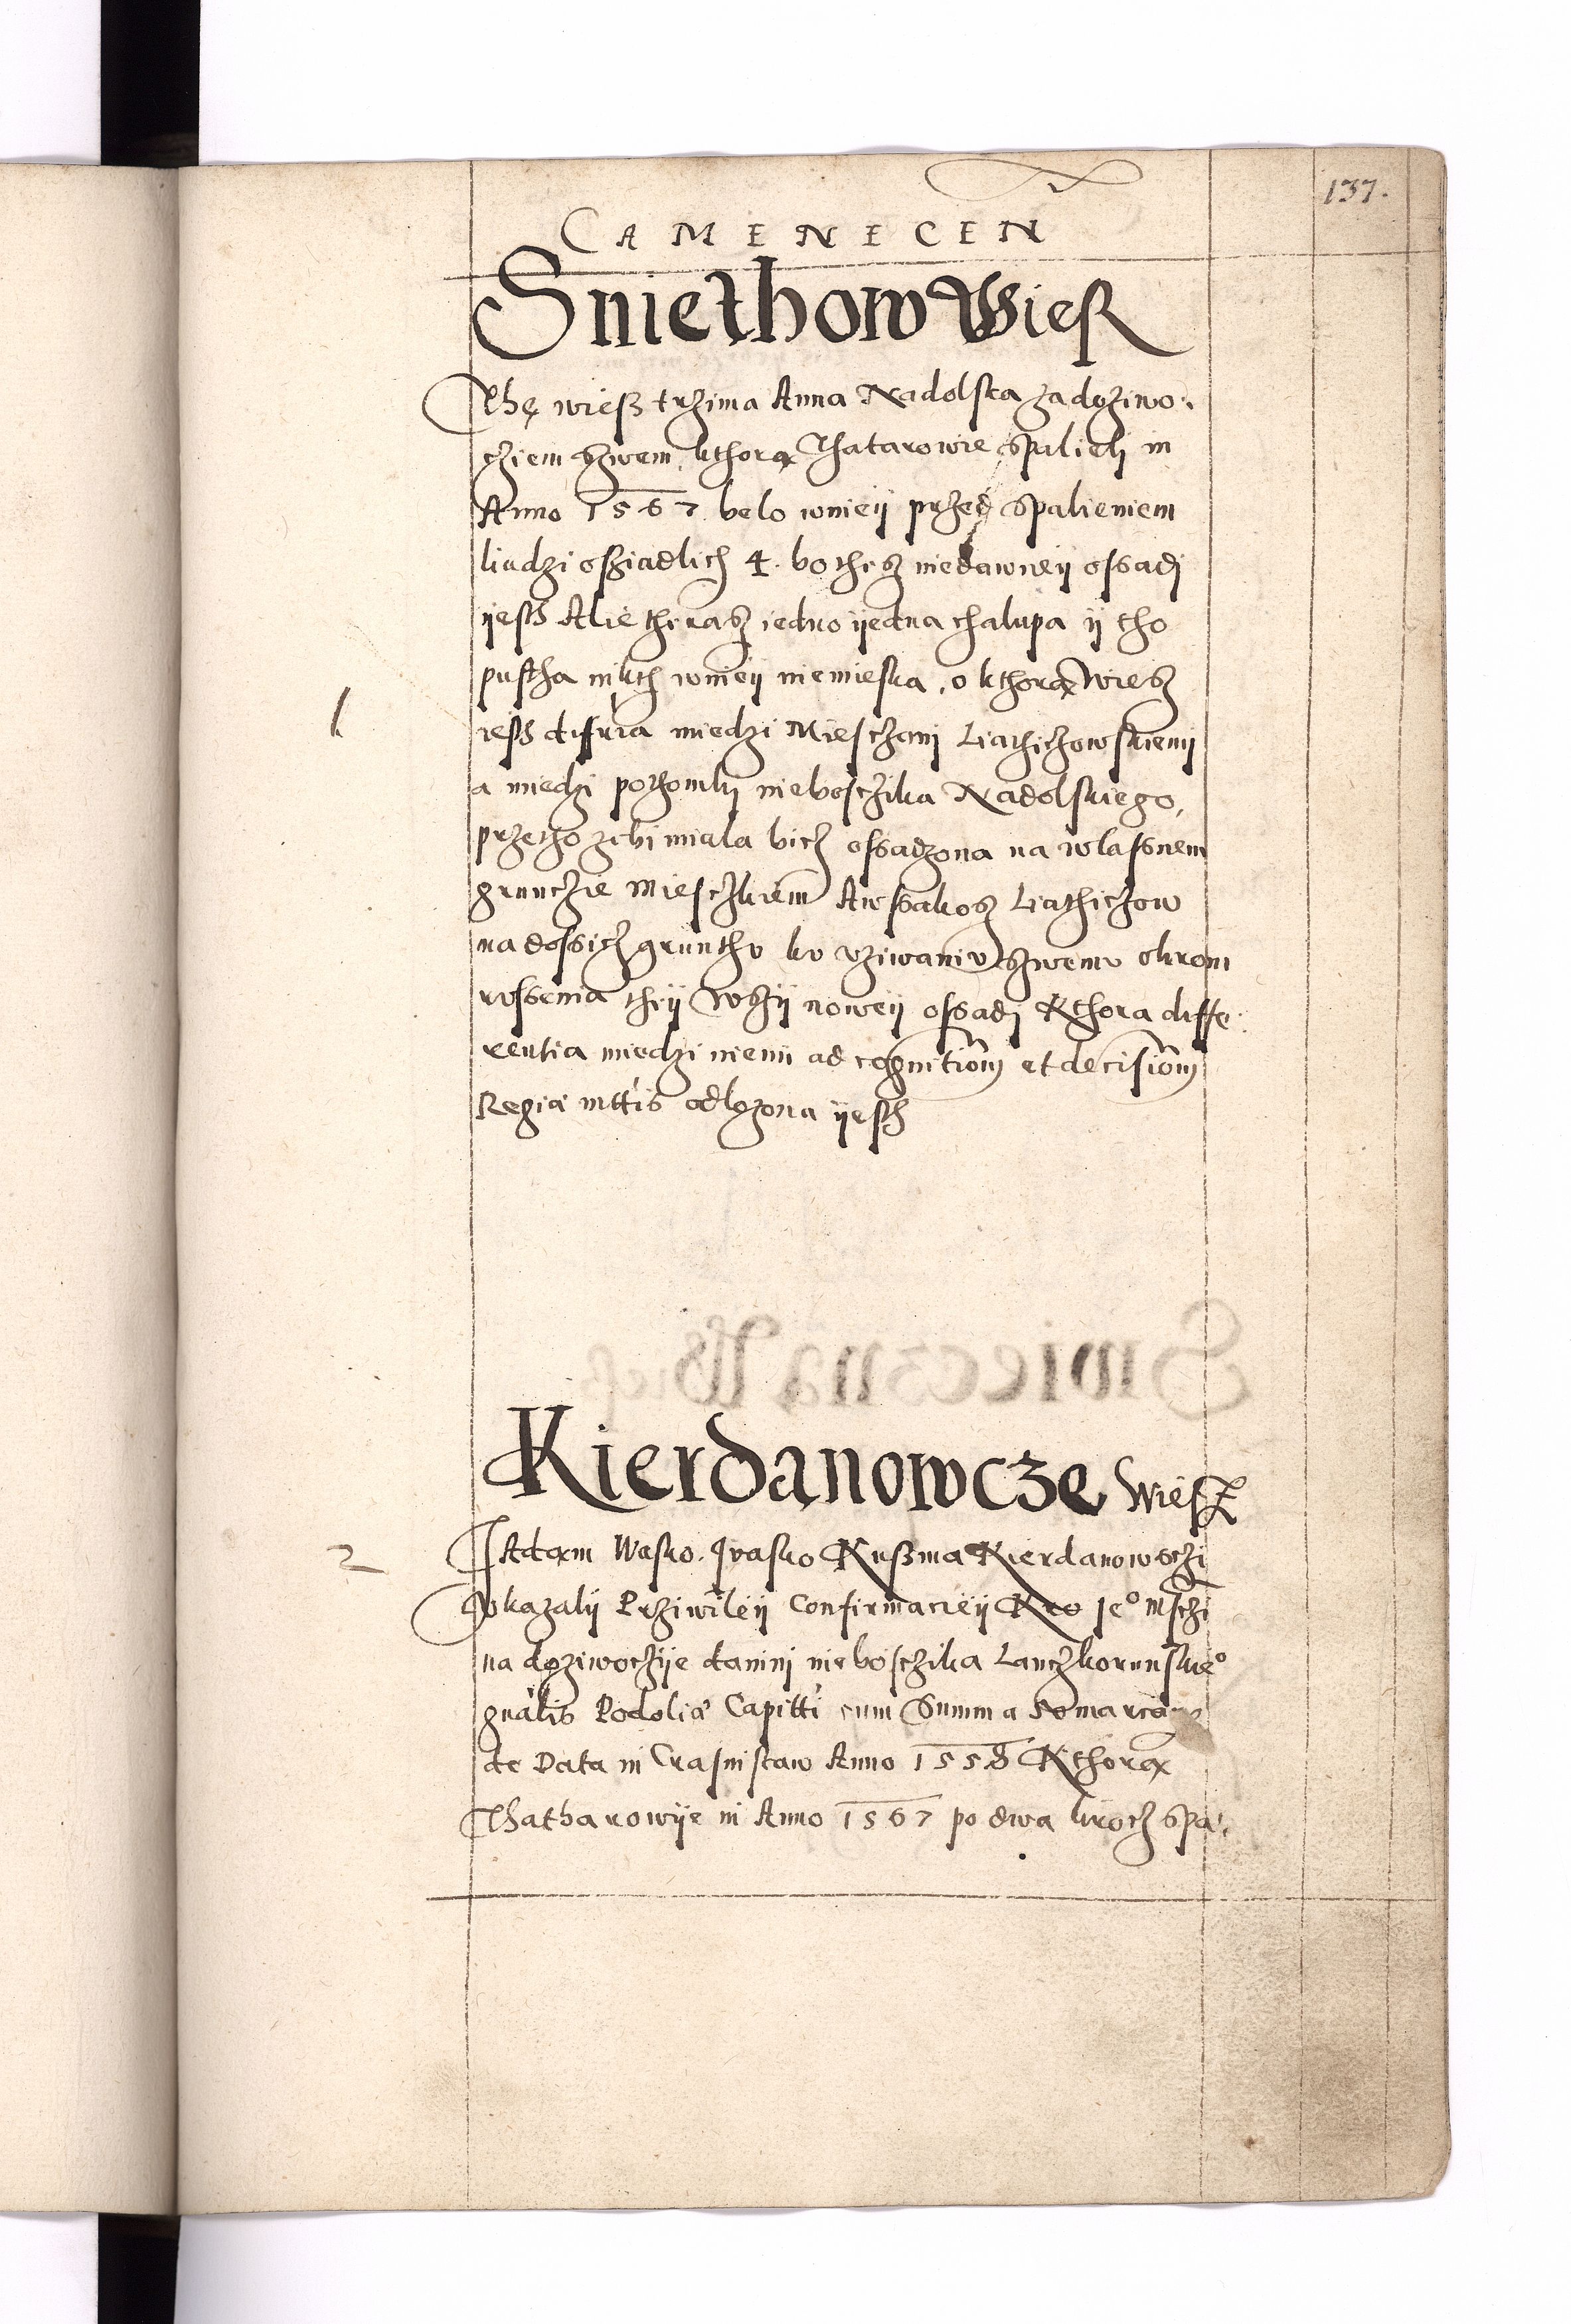 137.
CAMENECEN
Sniethow Wieß
Thę wieß trzima Anna Nadolska za doziwo-
cziem szwem, kthorą Thatarowie spalieli in
Anno 1567 belo wnieÿ przed spalieniem
liudzi osziadlich 4. bo thesz niedawneÿ ossadj
ÿesth Alie therasz iedno ÿedna chalupa ÿ tho
pustha nikth wnieÿ niemieska, o kthorą wiesz
iesth difria miedzi Miesczani Liathichowskiemÿ
a miedzi pothomkÿ niebosczika Nadolskiego,
przetho zebi miala bicz ossadzona na wlassnem
grunczie Miesczkiem A wssakosz Liathichow
ma dossicz grunthv kv vziwaniv szwemv okrom
rvssenia theÿ wsÿ noweÿ ossadj Kthora diffe-
rentia miedzi niemi ad cognitiom et decisiom
Regia mttis odlozona ÿesth
Kierdanowcze Wiesz
1
2
Adam Wasko. Ivasko Kußma Kierdanowsczi
Vkazalÿ Prziwileÿ Confirmacieÿ Kro Je° Msczi
na doziwoczÿe daninj niebosczika Lanczkorunskie°
gnalis Podolia Capitti cum Summa
de Data in Crasnistaw Anno 1558 Kthorą
Thatharowÿe in Anno 1567 po dwa krocz spa-